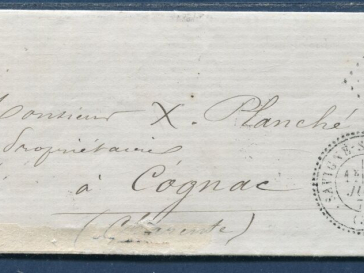 Monsieur X. Planché
Propriétaire
à Cognac
(Charente)
SAVIGNÉ-S